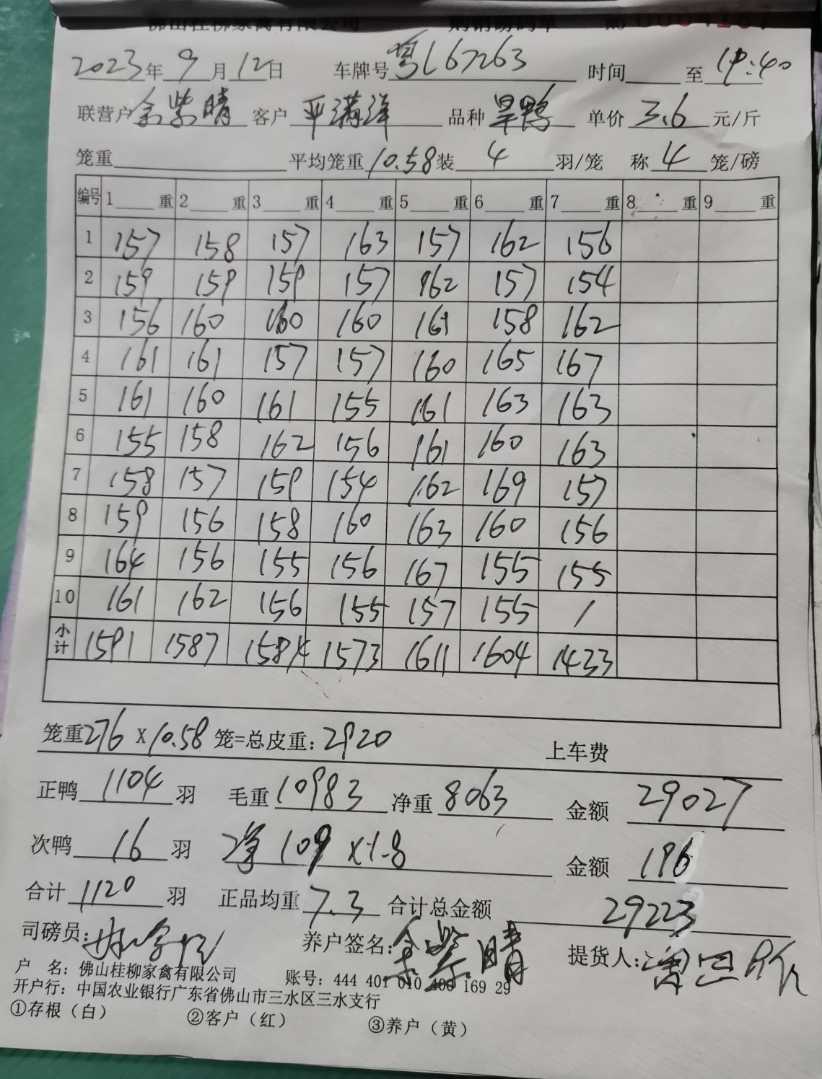 佛山桂柳家禽有限公司
2023年9月12日 车牌号 粤L67263 时间 至 19:40
联营户 余紫晴 客户 平满洋 品种 旱鸭 单价 3.6 元/斤
笼重 平均笼重 10.58 装 4 羽/笼 称 4 笼/磅
编号 1 重 2 重 3 重 4 重 5 重 6 重 7 重 8 重 9 重
1 157 158 157 163 157 162 156
2 159 159 159 157 162 157 154
3 156 160 160 160 161 158 162
4 161 161 157 157 160 165 167
5 161 160 161 155 161 163 163
6 155 158 162 156 161 160 163
7 158 157 159 154 162 169 157
8 159 156 158 160 163 160 156
9 164 156 155 156 167 155 155
10 161 162 156 155 157 155 /
小计 1591 1587 1584 1573 1611 1604 1433
笼重 276 X 10.58 笼=总皮重: 2920 上车费
正鸭 1104 羽 毛重 10983 净重 8063 金额 29027
次鸭 16 羽 净 109 X 1.8 金额 196
合计 1120 羽 正品均重 7.3 合计总金额 29223
司磅员: 养户签名: 余紫晴 提货人:
户 名: 佛山桂柳家禽有限公司 账号: 444 401 010 400 169 29
开户行: 中国农业银行广东省佛山市三水区三水支行
①存根（白） ②客户（红） ③养户（黄）